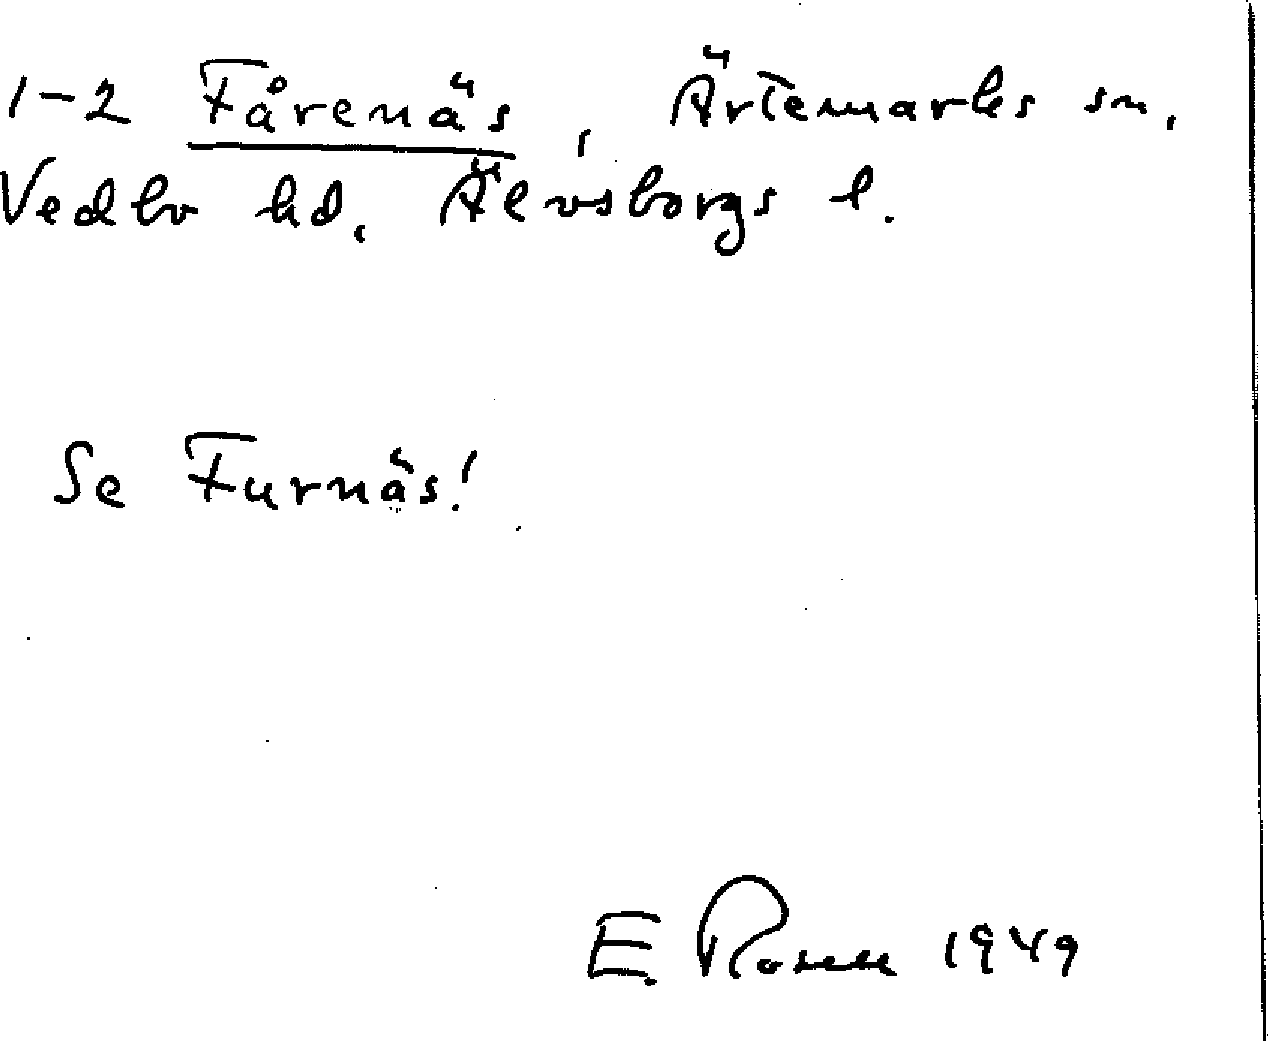 1-2 Fårenäs, Ärtemarks sn,
Vedbo hd, Älvsborgs l.
Se Furnäs!
E. Rosell 1949